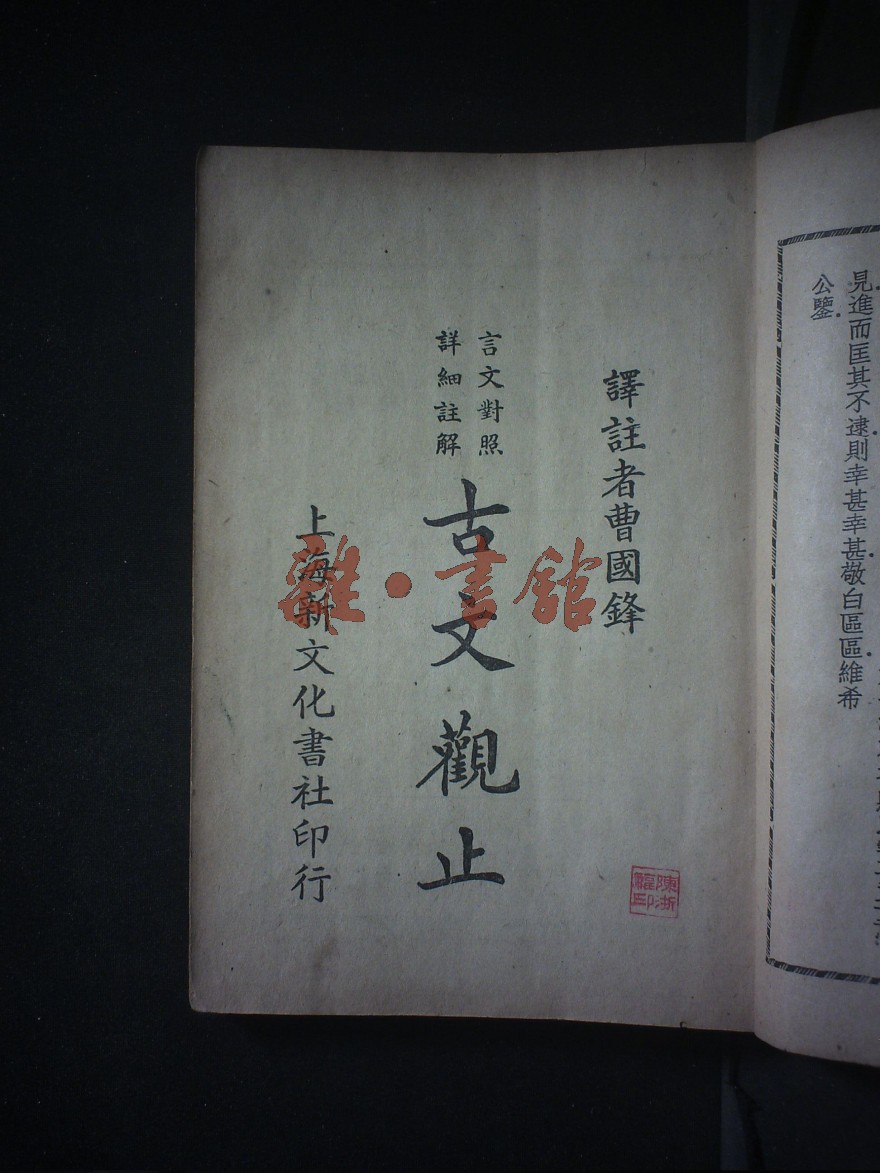 見進而匡其不逮則幸甚幸甚敬白區區維希
公鑒
譯註者曹國鋒
言文對照
詳細註解
古文觀止
上海新文化書社印行
雜·書館
陳浙
福印